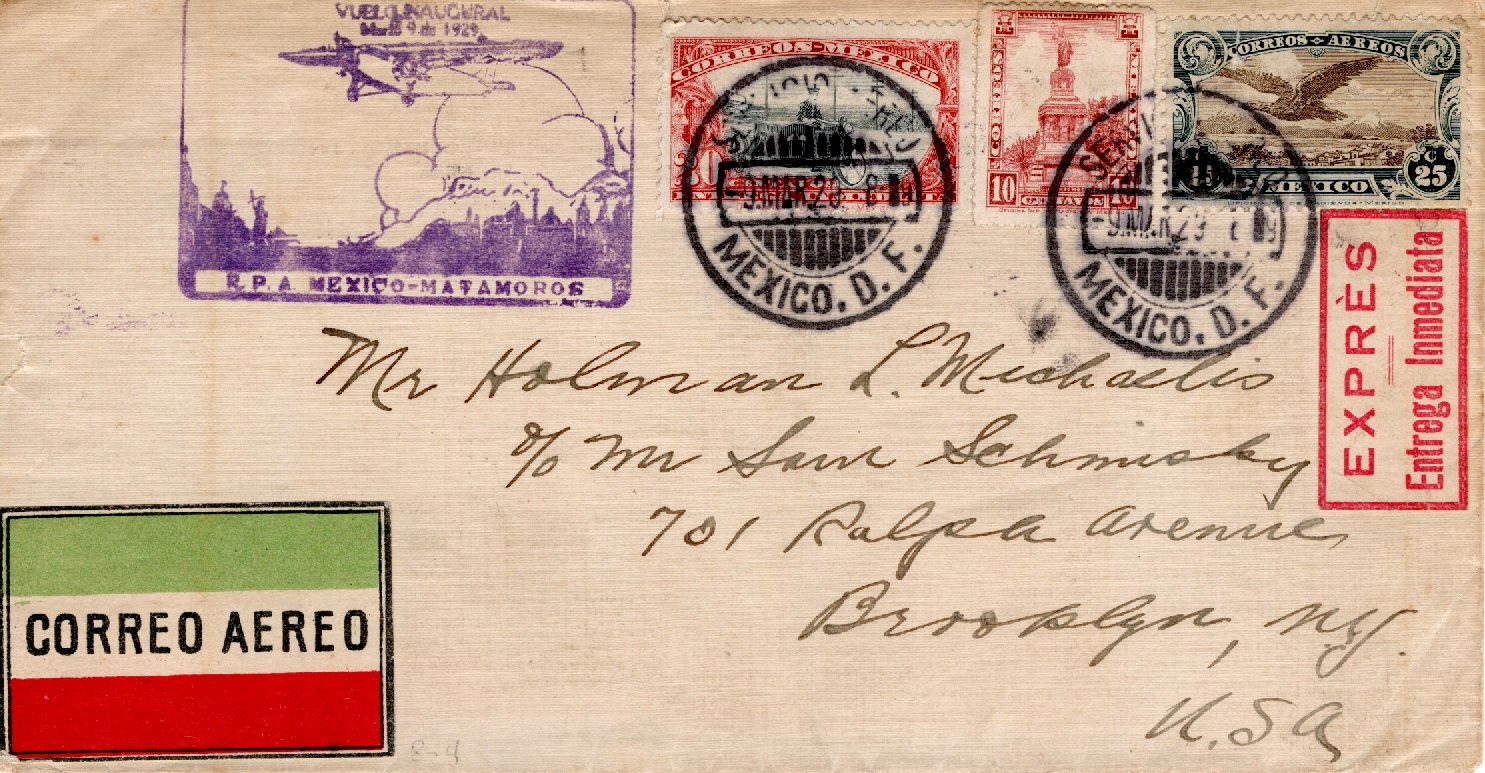 VUELO INAUGURAL
Marzo 9 de 1929
R.P.A. MEXICO-MATAMOROS
CORREOS-MEXICO
30
CORREOS
MEXICO
10 CENTAVOS 10
CORREOS AEREOS
25 MEXICO 25
9.MAR.29
MEXICO. D. F.
SERVICIO
9.MAR.29
MEXICO. D. F.
EXPRÈS
Entrega Inmediata
Mr Holman L. Michaelis
c/o Mr Sam Schmisky
701 Ralph Avenue
Brooklyn, NY.
U.S.A,
CORREO AEREO